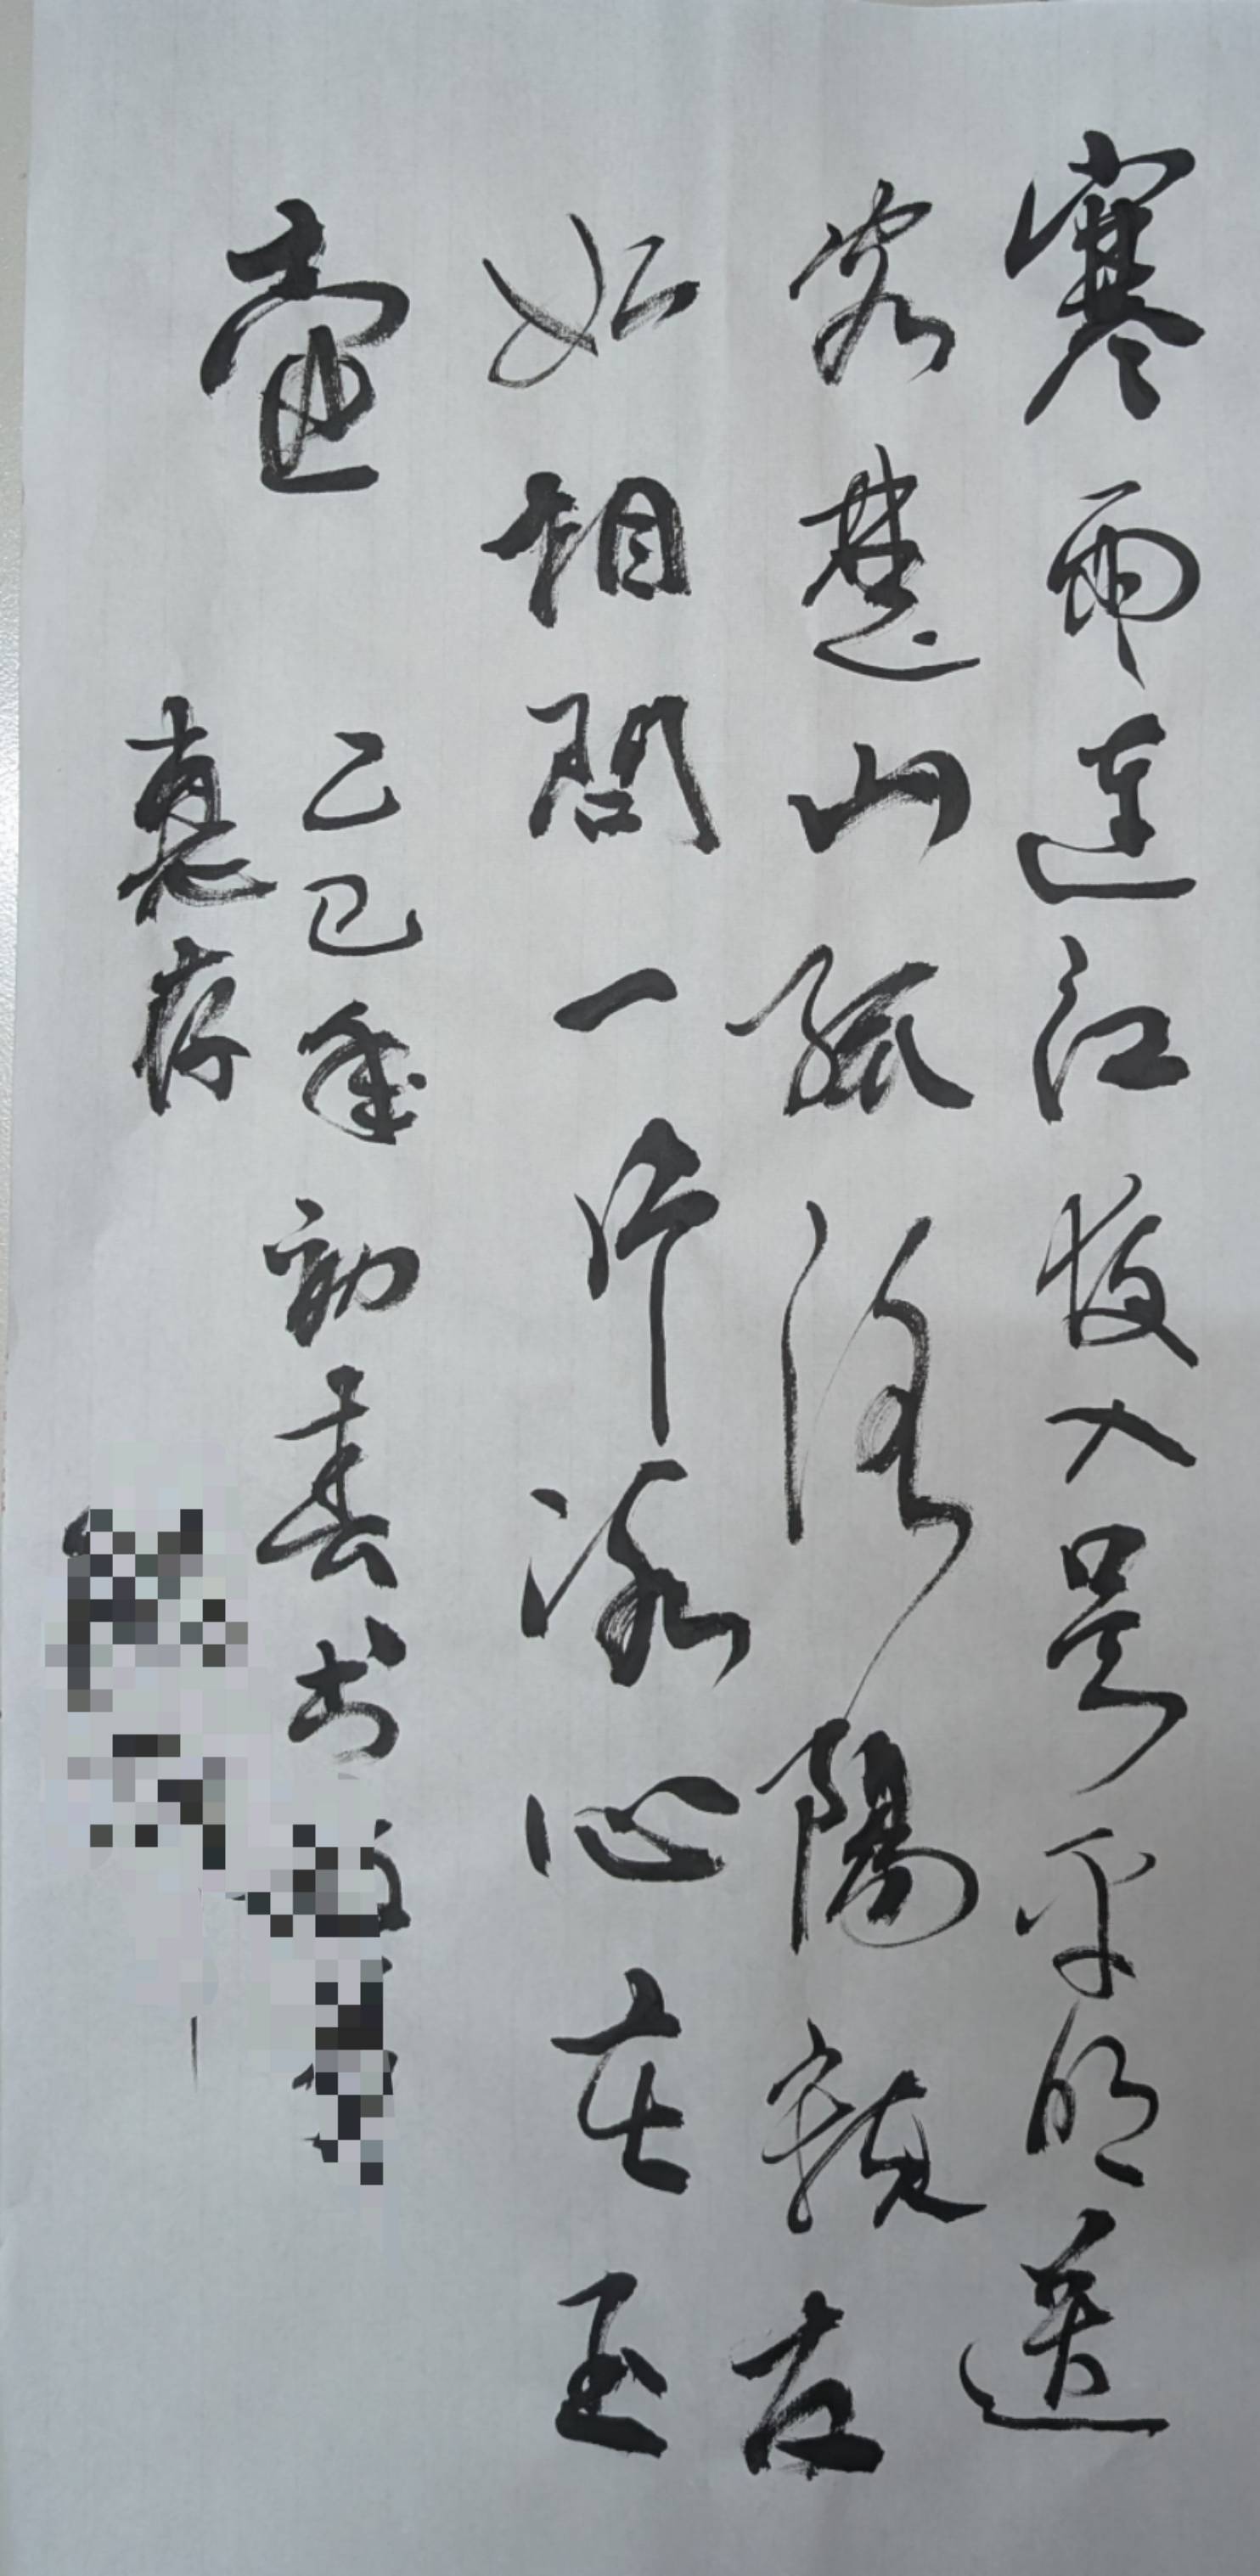 寒雨連江夜入吴平明送
客楚山孤洛陽親友
如相問一片冰心在玉
壺
乙巳年初春书
惠存